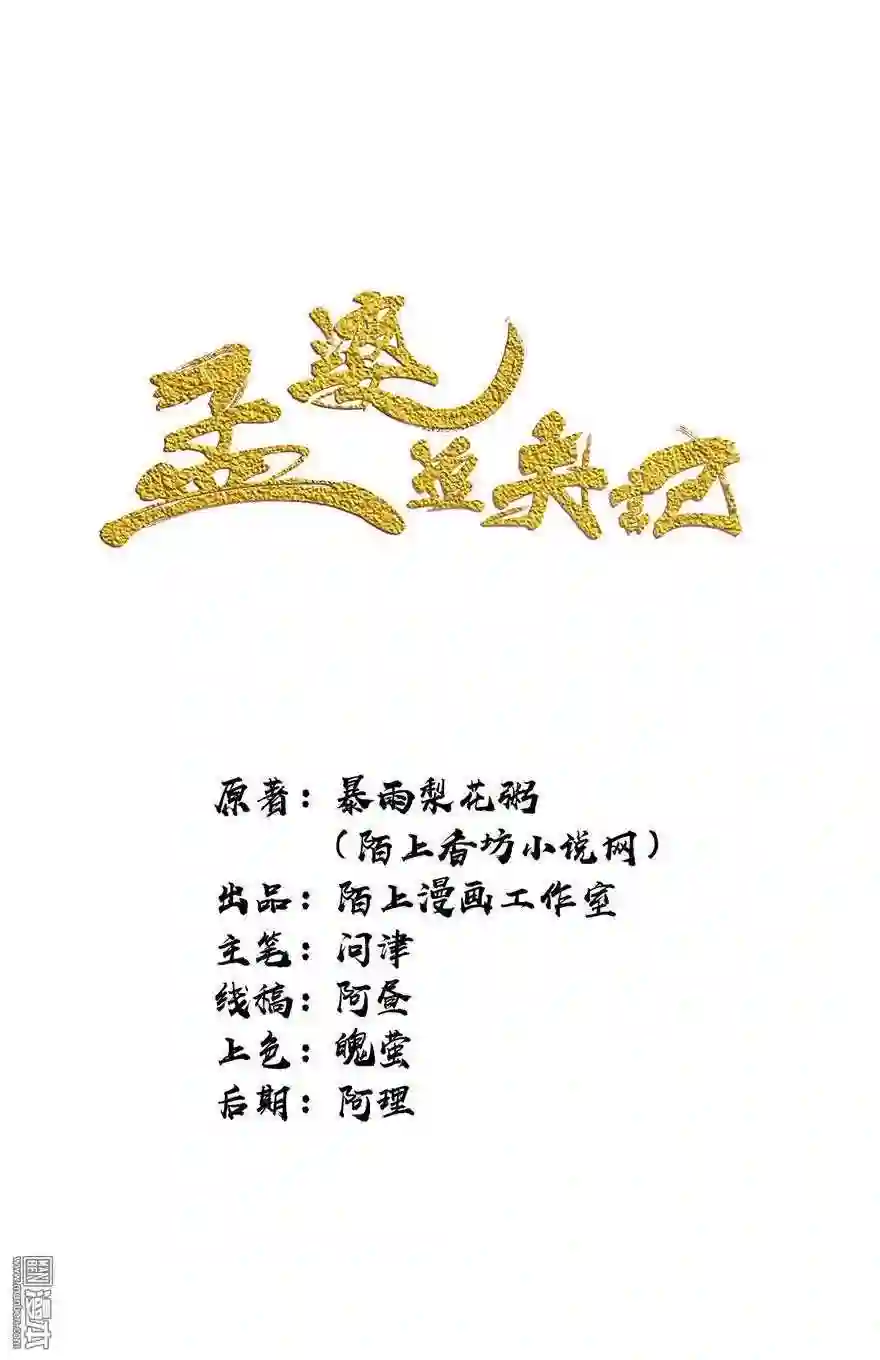 孟婆追夫记
原著：暴雨梨花粥
（陌上香坊小说网）
出品：陌上漫画工作室
主笔：问津
线稿：阿昼
上色：魄萤
后期：阿理
漫本
MAN
BEN
www.manben.com